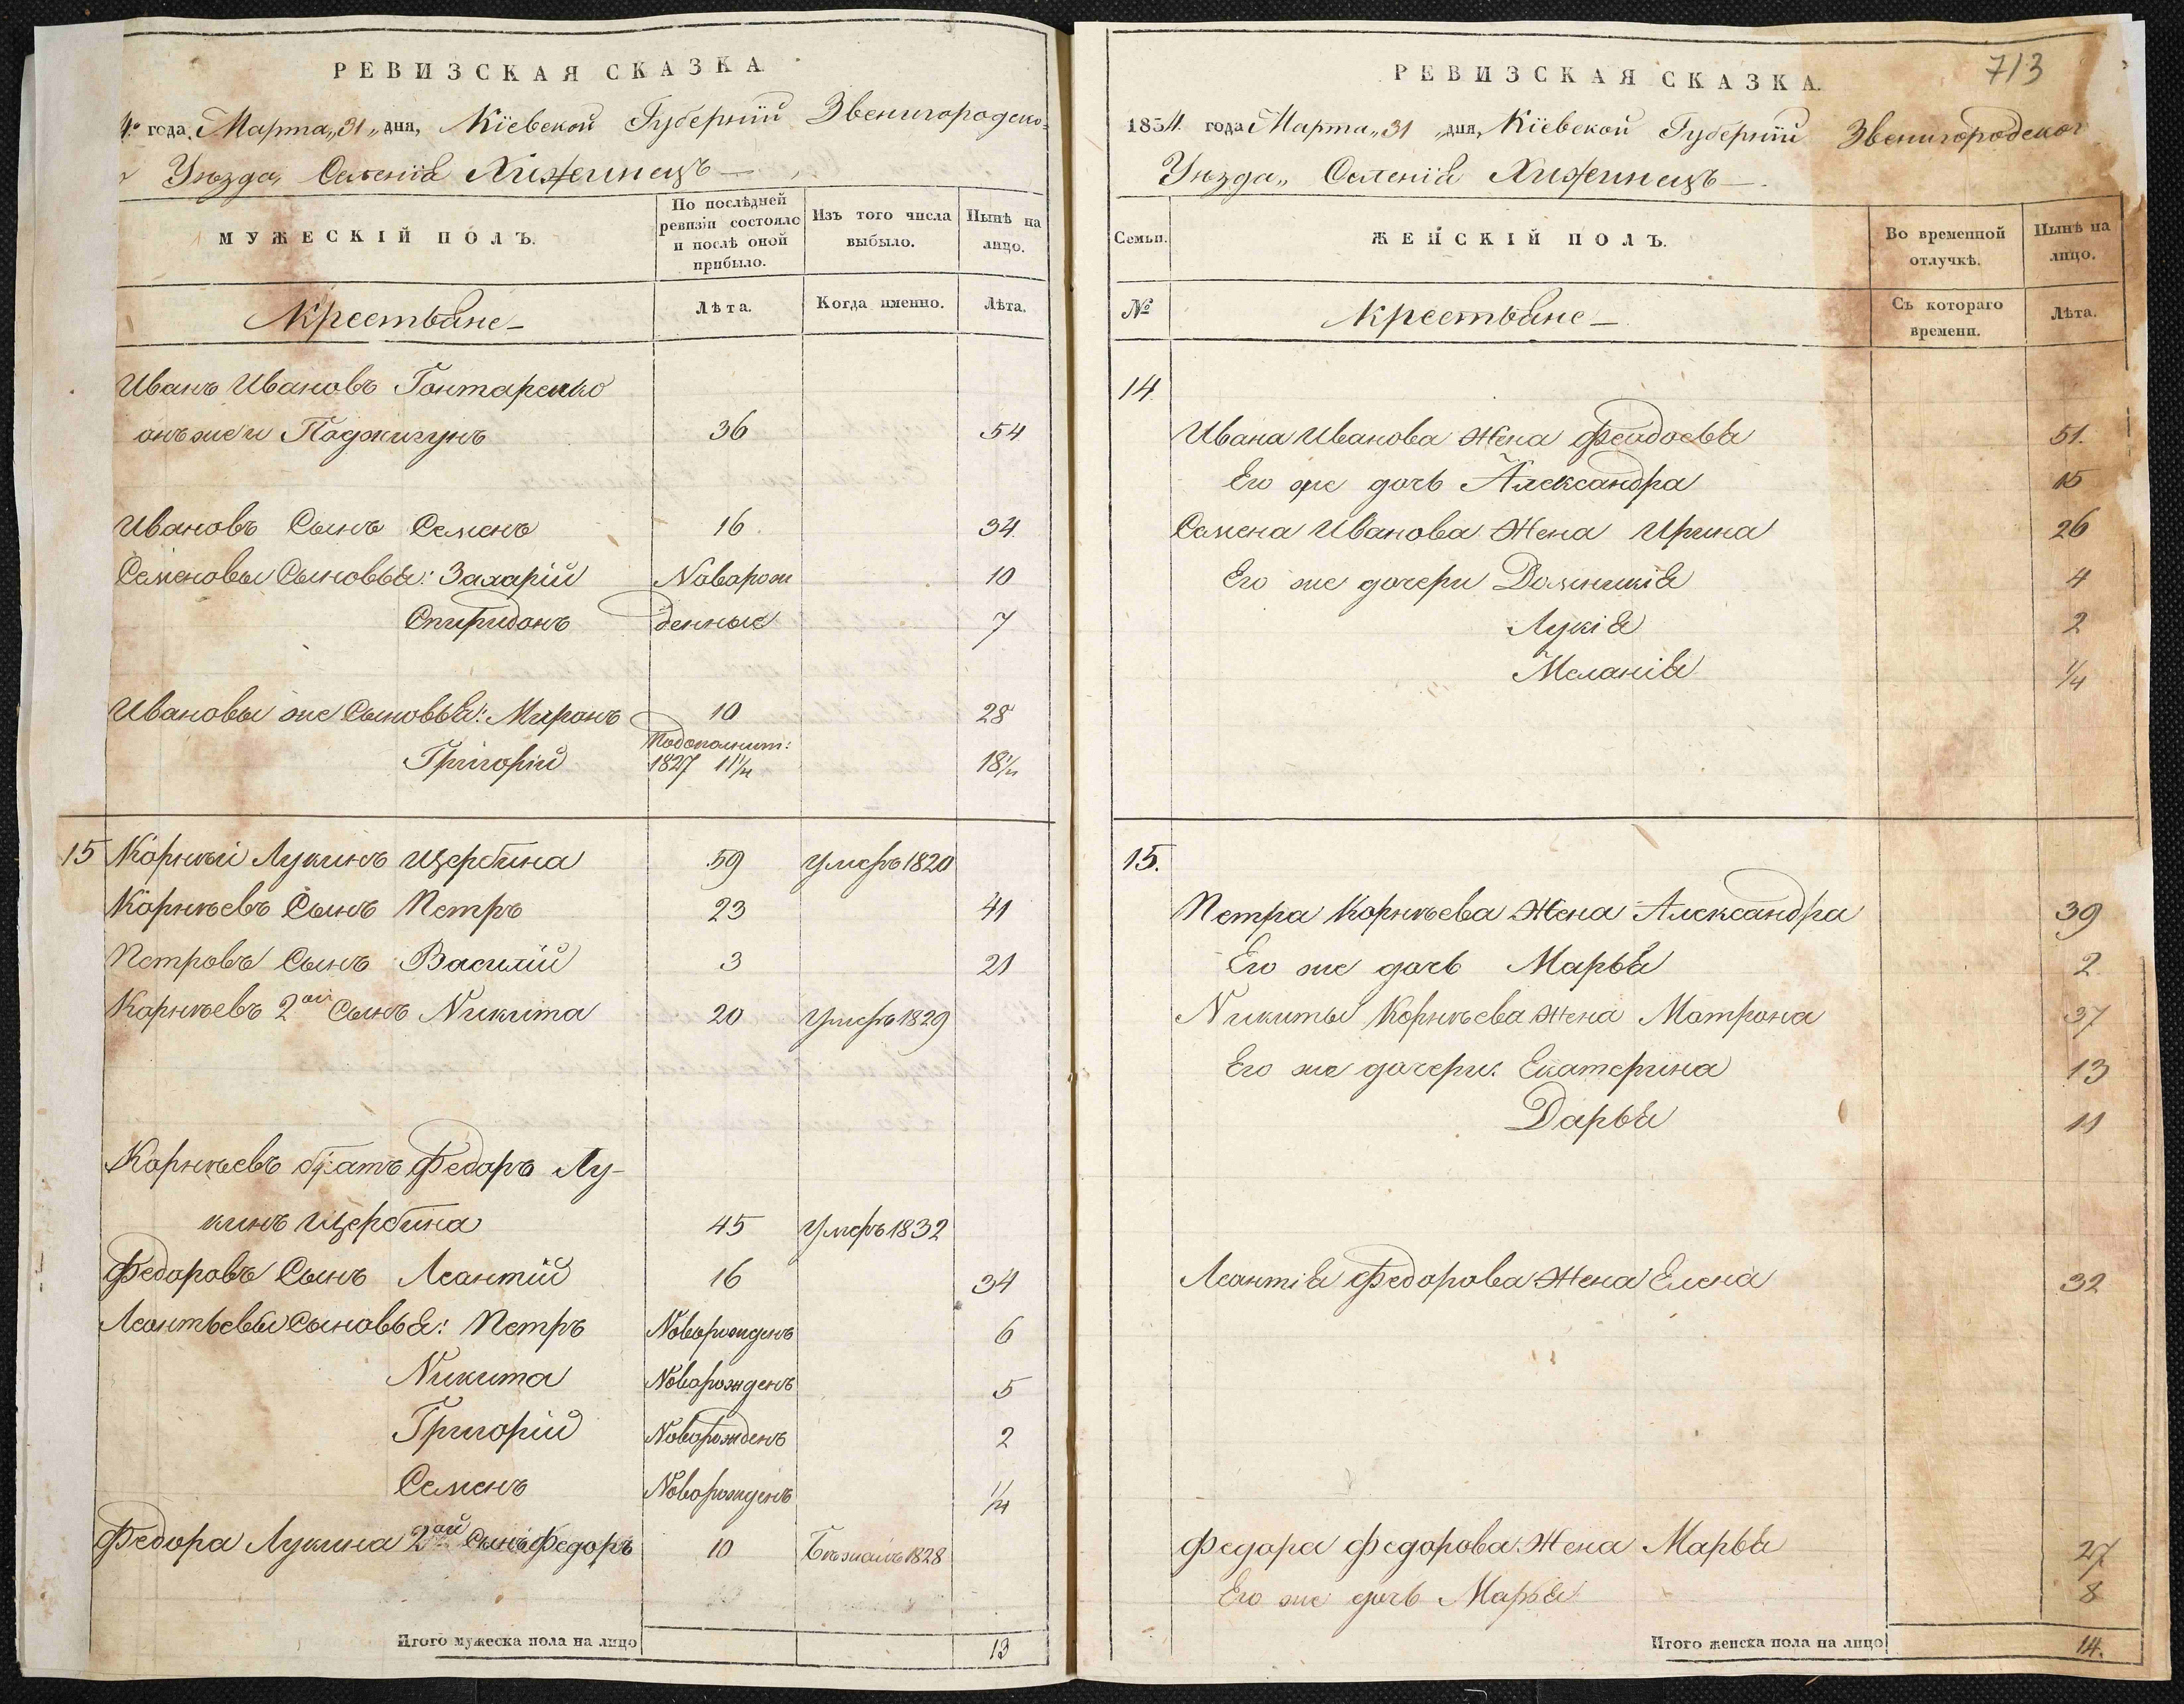 РЕВИЗСКАЯ СКАЗКА
4го года Марта „31„ дня, Кіевской Губерніи Звенигородско-
Уѣзда, Селенія Хижинецъ —
МУЖЕСКІЙ ПОЛЪ.
По послѣдней ревизіи состояло и послѣ оной прибыло.
Изъ того числа выбыло.
Нынѣ на лицо.
Крестьяне —
Лѣта.
Когда именно.
Лѣта.
Иванъ Ивановъ Гонтаренко
онъ же и Поджигунъ 36 54
Ивановъ Сынъ Семенъ 16 34
Семеновы Сыновья: Захарій Новорож 10
Спиридонъ денные 7
Ивановы же Сыновья: Миронъ 10 28
Подополнит:
Григорій 1827 11 1/4 18 1/4
15 Корнѣй Лукинъ Щербина 59 Умеръ 1820
Корнѣевъ Сынъ Петръ 23 41
Петровъ Сынъ Василій 3 21
Корнѣевъ 2ой Сынъ Никита 20 Умеръ 1829
Корнѣевъ братъ Федоръ Лу-
кинъ Щербина 45 Умеръ 1832
Федоровъ Сынъ Леонтій 16 34
Леонтьевы Сыновья: Петръ Новорожденъ 6
Никита Новорожденъ 5
Григорій Новорожденъ 2
Семенъ Новорожденъ 1/4
Федора Лукина 2ой Сынъ Федоръ 10 Бѣжалъ 1828
Итого мужеска пола на лицо 13
713
РЕВИЗСКАЯ СКАЗКА.
1834 года Марта „31 „дня, Кіевской Губерніи Звенигородског
Уѣзда„ Селенія Хижинецъ —
Семьи.
ЖЕНСКІЙ ПОЛЪ.
Во временной отлучкѣ.
Нынѣ на лицо.
№
Крестьяне —
Съ котораго времени.
Лѣта.
14
Ивана Иванова Жена Феодосья 51.
Его же дочь Александра 15
Семена Иванова Жена Ирина 26
Его же дочери Домникія 4
Лукія 2
Меланія 1/4
15.
Петра Корнѣева Жена Александра 39
Его же дочь Марья 2
Никиты Корнѣева Жена Матрона 37
Его же дочери: Екатерина 13
Дарья 11
Леонтія Федорова Жена Елена 32
Федора Федорова Жена Марья 27
Его же дочь Марья 8
Итого женска пола на лицо 14.